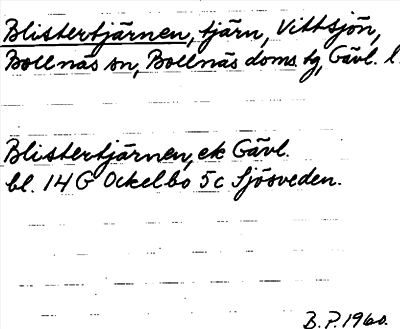 Blistertjärnen, tjärn, Vittsjön,
Bollnäs sn, Bollnäs doms. tg, Gävl. l.
Blistertjärnen, ek Gävl.
bl. 14 G Ockelbo 5c Sjösveden.
B.P. 1960.